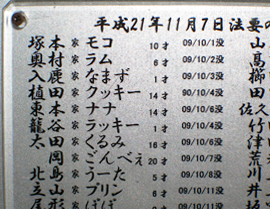 平成21年11月7日法要の
塚本家モコ 10才 09/10/1没 山
奥村家ラム 6才 09/10/2没 高
入鹿家なまず 1才 09/10/3没 櫛
植田家クッキー 14才 90/10/4没 田
東本家ナナ 14才 09/10/6没 佐久
龍谷家ラッキー 1才 09/10/6没 竹
太田家くるみ 16才 09/10/6没 津
岡家ごんべえ 20才 09/10/7没 荒
北島家うーた 5才 川
立山家プリン 6才 09/10/11没 井
尾形家